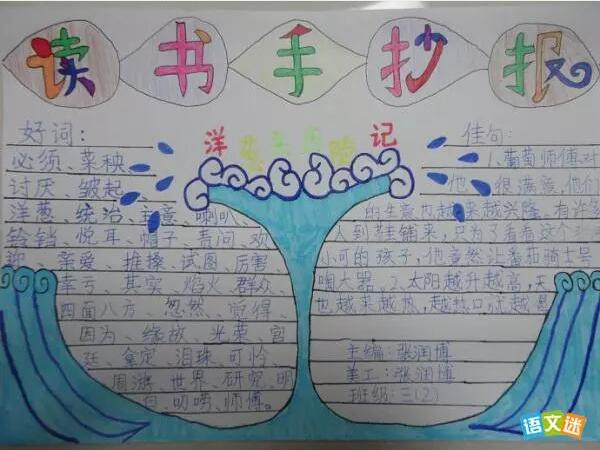 读书手抄报
洋葱头历险记
好词:
必须、菜秧
讨厌、皱起、
洋葱、统治、主意、喇叭、
铃铛、悦耳、帽子、责问、欢
迎、亲爱、推搡、试图、厉害、
幸亏、其实、焰火、群众、
四面八方、忽然、觉得、
因为、缘故、光荣、宫
廷、拿定、泪珠、可怜、
周游、世界、研究、明
白、叨唠、师傅。
佳句:
1、葡萄师傅对
他 很满意,他们
的生意也越来越兴隆。有许多
人到鞋铺来,只为了看看这个
小可的孩子,他竟然让番茄骑士号
啕大哭。2、太阳越升越高,天
也越来越热,越热口渴越
主编:张润博
美工:张润博
班级:三(2)
语文迷